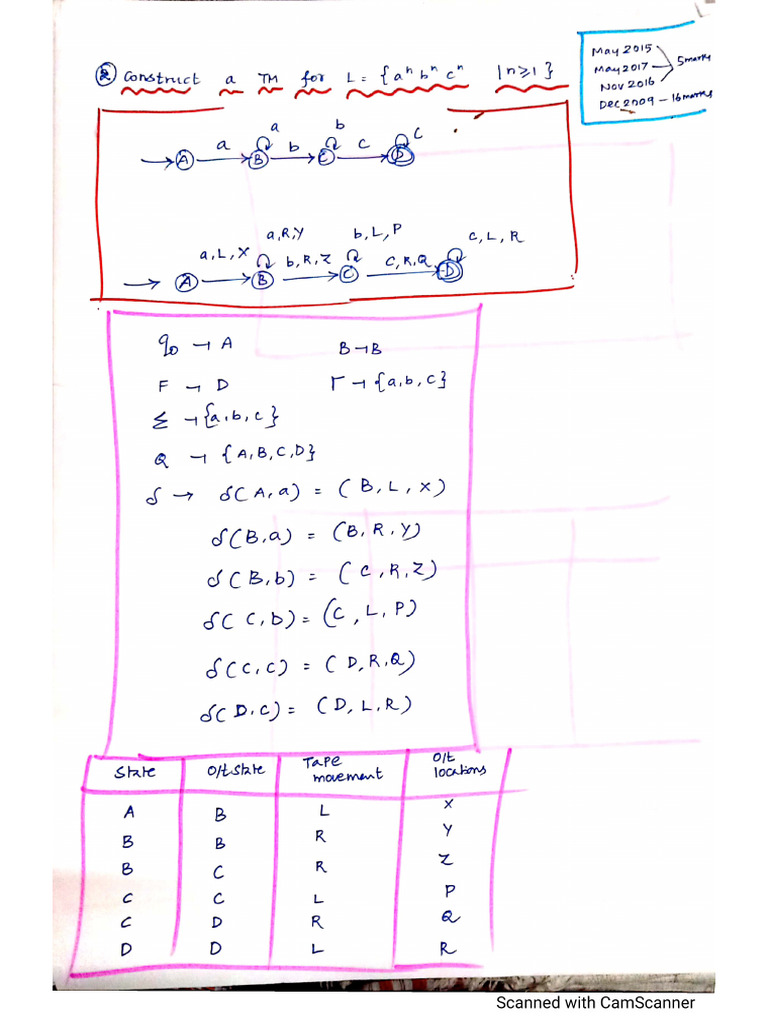 2 Construct a TM for L = {aⁿ bⁿ cⁿ | n≥1}
May 2015
May 2017
Nov 2016
5 marks
Dec 2009 – 16 marks
a
b
c
→ A a B b C c D
a,R,Y
b,L,P
c,L,R
a,L,X
b,R,Z
c,R,Q
→ A B C D
q₀ → A
B → B
F → D
Γ → {a,b,c}
Σ → {a,b,c}
Q → {A,B,C,D}
δ → δ(A,a) = (B,L,X)
δ(B,a) = (B,R,Y)
δ(B,b) = (C,R,Z)
δ(C,b) = (C,L,P)
δ(C,C) = (D,R,Q)
δ(D,C) = (D,L,R)
State O/t State Tape movement O/t locations
A B L X
B B R Y
B C R Z
C C L P
C D R Q
D D L R
Scanned with CamScanner